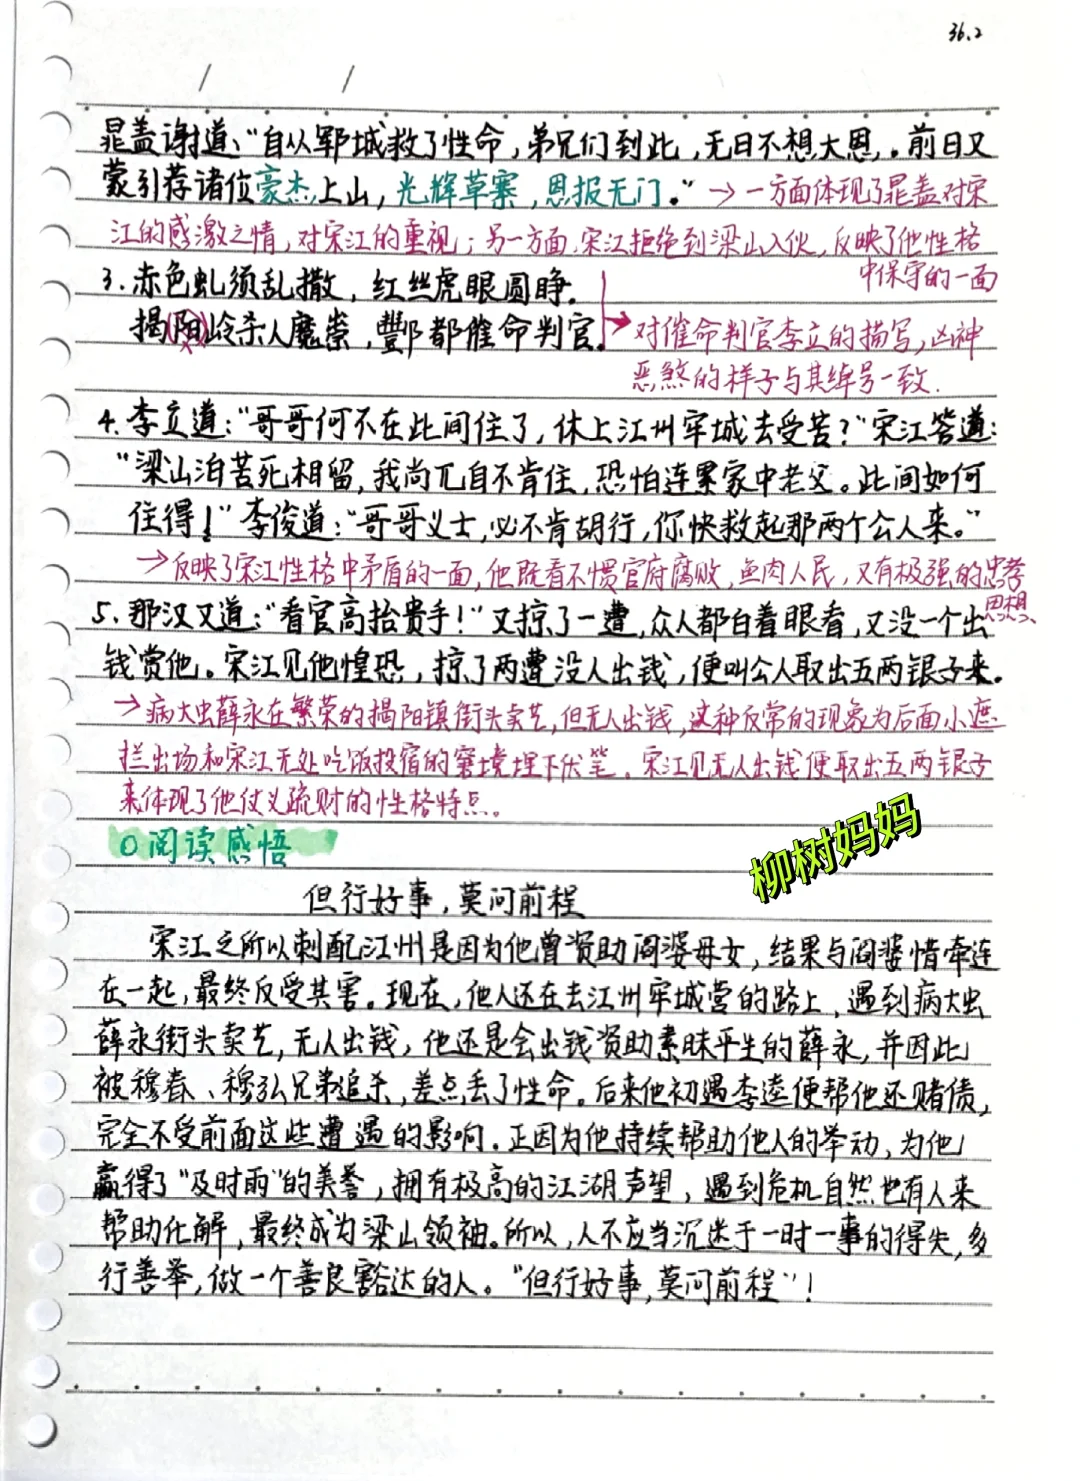 36.2
晁盖谢道:“自从郓城救了性命,弟兄们到此,无日不想大恩,。前日又
蒙引荐诸位豪杰上山,光辉草寨,恩报无门。”→一方面体现了晁盖对宋
江的感激之情,对宋江的重视;另一方面,宋江拒绝到梁山入伙,反映了他性格
中保守的一面
3.赤色虬须乱撒,红丝虎眼圆睁.
揭阳岭杀人魔祟,酆都催命判官.
→对催命判官李立的描写,凶神
恶煞的样子与其绰号一致.
4.李立道:“哥哥何不在此间住了,休上江州牢城去受苦?”宋江答道:
“梁山泊苦死相留,我尚兀自不肯住,恐怕连累家中老父。此间如何
住得!”李俊道:“哥哥义士,必不肯胡行,你快救起那两个公人来。”
→反映了宋江性格中矛盾的一面,他既看不惯官府腐败,鱼肉人民,又有极强的忠孝
思想、
5.那汉又道:“看官高抬贵手!”又掠了一遭,众人都白着眼看,又没一个出
钱赏他。宋江见他惶恐,掠了两遭没人出钱,便叫公人取出五两银子来。
→病大虫薛永在繁荣的揭阳镇街头卖艺,但无人出钱,这种反常的现象为后面小遮
拦出场和宋江无处吃饭投宿的窘境埋下伏笔。宋江见无人出钱便取出五两银子
来体现了他仗义疏财的性格特点。
○阅读感悟
柳树妈妈
但行好事,莫问前程
宋江之所以刺配江州是因为他曾资助阎婆母女,结果与阎婆惜牵连
在一起,最终反受其害。现在,他人还在去江州牢城营的路上,遇到病大虫
薛永街头卖艺,无人出钱,他还是会出钱资助素昧平生的薛永,并因此
被穆春、穆弘兄弟追杀,差点丢了性命。后来他初遇李逵便帮他还赌债,
完全不受前面这些遭遇的影响.正因为他持续帮助他人的举动,为他
赢得了“及时雨”的美誉,拥有极高的江湖声望,遇到危机自然也有人来
帮助化解,最终成为梁山领袖。所以,人不应当沉迷于一时一事的得失,多
行善举,做一个善良豁达的人。“但行好事,莫问前程”!